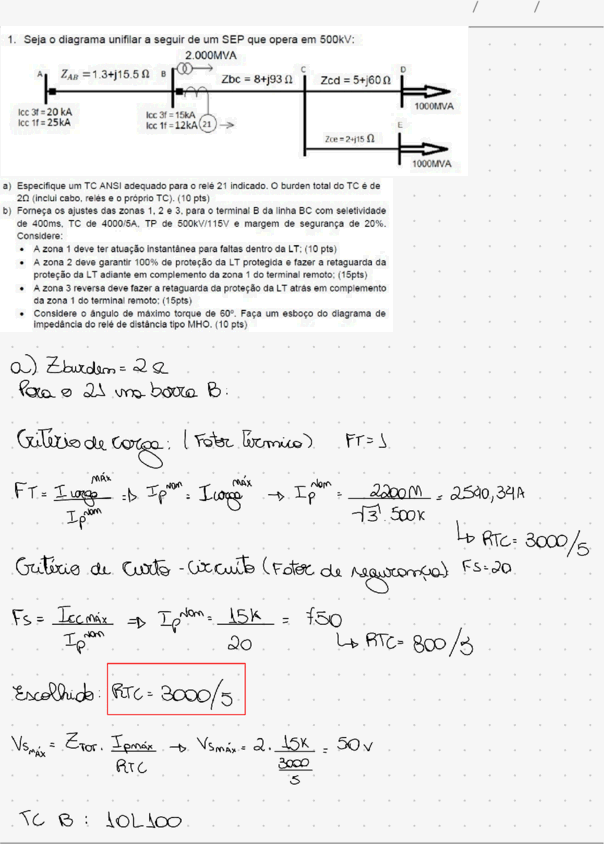 / /
1. Seja o diagrama unifilar a seguir de um SEP que opera em 500kV:
2.000MVA
A Z_AB = 1.3+j15.5 Ω B Zbc = 8+j93 Ω C Zcd = 5+j60 Ω D
1000MVA
Icc 3f = 20 kA
Icc 1f = 25kA
Icc 3f = 15kA
Icc 1f = 12kA 21
Zce = 2+j15 Ω E
1000MVA
a) Especifique um TC ANSI adequado para o relé 21 indicado. O burden total do TC é de
2Ω (inclui cabo, relés e o próprio TC). (10 pts)
b) Forneça os ajustes das zonas 1, 2 e 3, para o terminal B da linha BC com seletividade
de 400ms, TC de 4000/5A, TP de 500kV/115V e margem de segurança de 20%.
Considere:
• A zona 1 deve ter atuação instantânea para faltas dentro da LT; (10 pts)
• A zona 2 deve garantir 100% de proteção da LT protegida e fazer a retaguarda da
proteção da LT adiante em complemento da zona 1 do terminal remoto; (15pts)
• A zona 3 reversa deve fazer a retaguarda da proteção da LT atrás em complemento
da zona 1 do terminal remoto; (15pts)
• Considere o ângulo de máximo torque de 60º. Faça um esboço do diagrama de
impedância do relé de distância tipo MHO. (10 pts)
a) Zburden = 2Ω
Para o 21 na barra B:
Critério de carga: (Fator Térmico) FT = 1
FT = Icarga^máx / Ip^nom => Ip^nom = Icarga^máx → Ip^nom = 2200M / √3 . 500k = 2540,34A
↳ RTC = 3000/5
Critério de Curto-Circuito (Fator de segurança) FS = 20
FS = Iccmáx / Ip^nom => Ip^nom = 15k / 20 = 750
↳ RTC = 800/5
Escolhido: RTC = 3000/5
Vs_máx = ZTOT . Ipmáx / RTC → Vsmáx = 2 . 15k / (3000/5) = 50v
TC B : 10L100